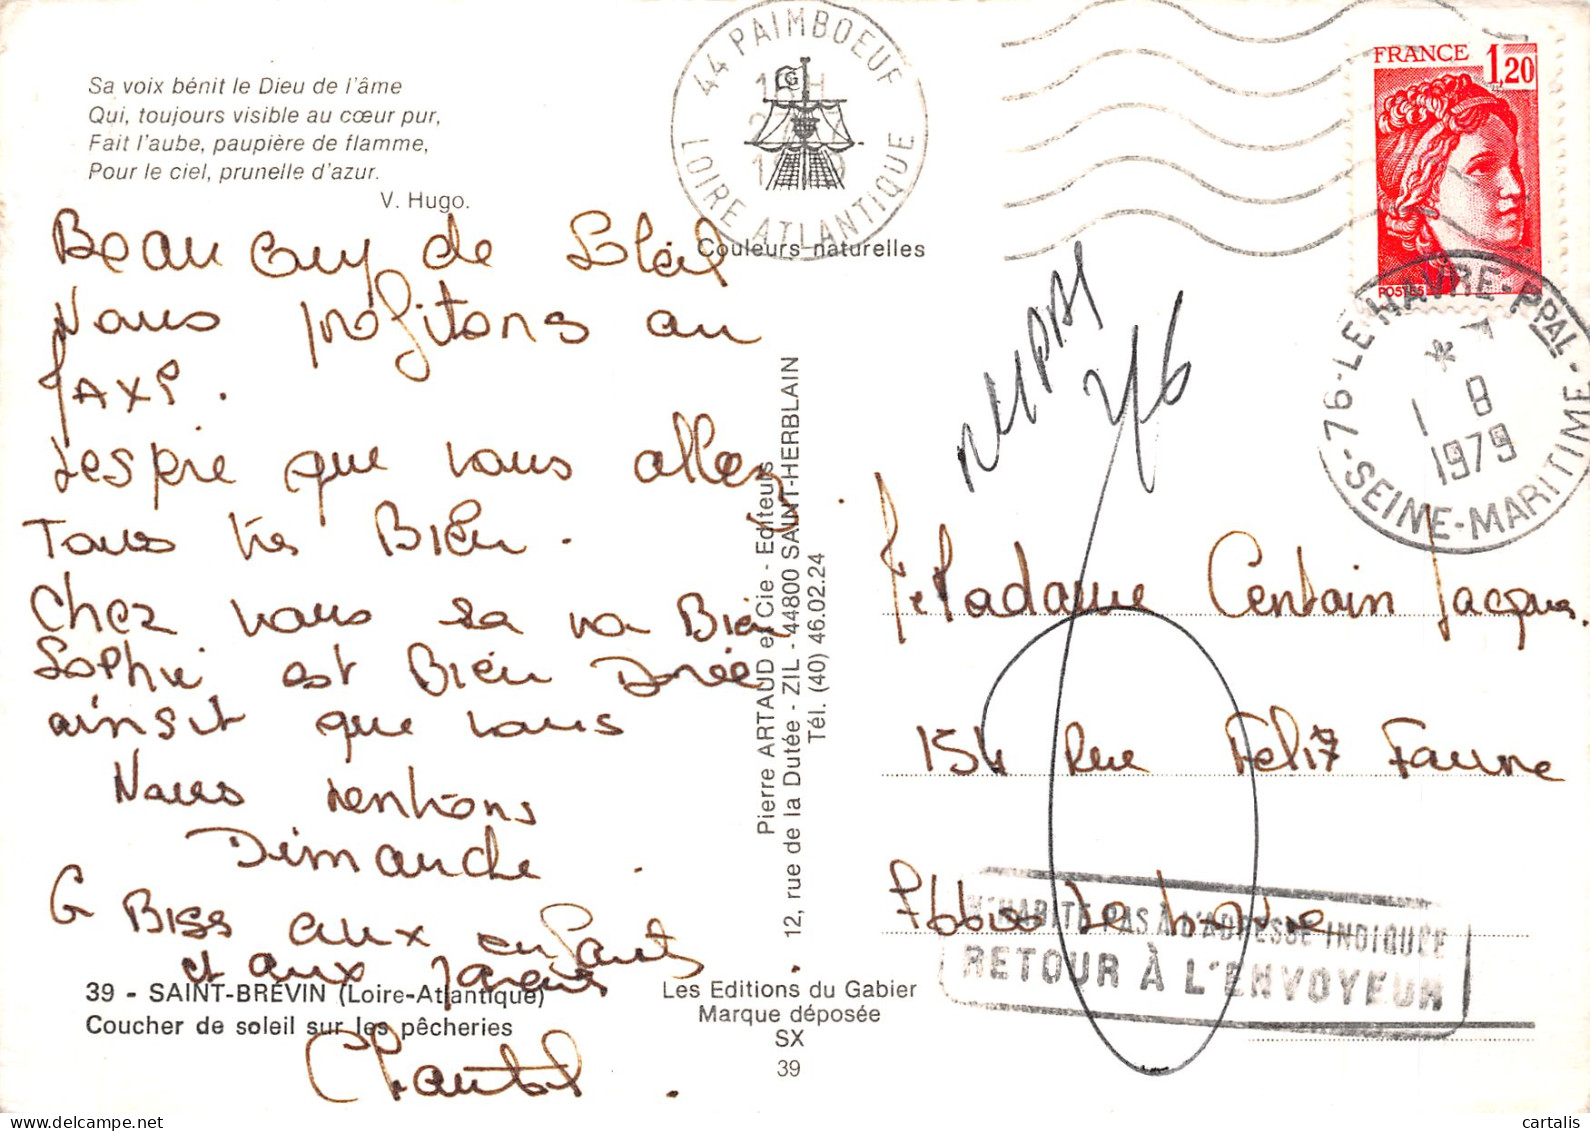 Sa voix bénit le Dieu de l'âme
Qui, toujours visible au cœur pur,
Fait l'aube, paupière de flamme,
Pour le ciel, prunelle d'azur.
V. Hugo.
Beaucoup de Soleil
Nous profitons au
maxi.
J'espère que vous allez
Tous très Bien.
Chez nous sa va Bien
Sophie est Bien Dorée
ainsit que nous
Nous rentrons
Dimanche
G Biss aux enfants
et aux Jacques
Chantal.
39 - SAINT-BRÉVIN (Loire-Atlantique)
Coucher de soleil sur les pêcheries
44 PAIMBOEUF
LOIRE ATLANTIQUE
LG
Couleurs naturelles
Pierre ARTAUD et Cie - Editeurs
12, rue de la Dutée - ZIL - 44800 SAINT-HERBLAIN
Tél. (40) 46.02.24
Les Editions du Gabier
Marque déposée
SX
39
FRANCE 1,20
POSTES
76-LE HAVRE-PPAL-
1 8
1979
-SEINE-MARITIME-
Madame Centain Jacques.
154 Rue Felix Faure
Le Havre
N'HABITE PAS À L'ADRESSE INDIQUÉE
RETOUR À L'ENVOYEUR
cartalis